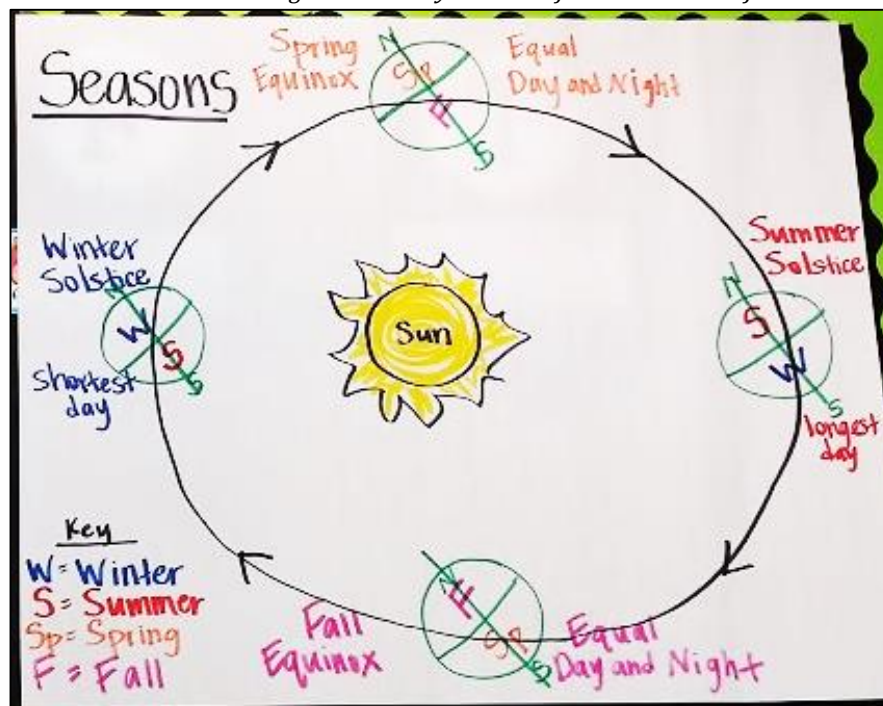 Seasons
Spring
Equinox
N
Sp
F
S
Equal
Day and Night
Winter
Solstice
N
W
S
S
shortest
day
Sun
Summer
Solstice
N
S
W
S
longest
day
Key
W = Winter
S = Summer
Sp = Spring
F = Fall
Fall
Equinox
N
F
Sp
S
Equal
Day and Night